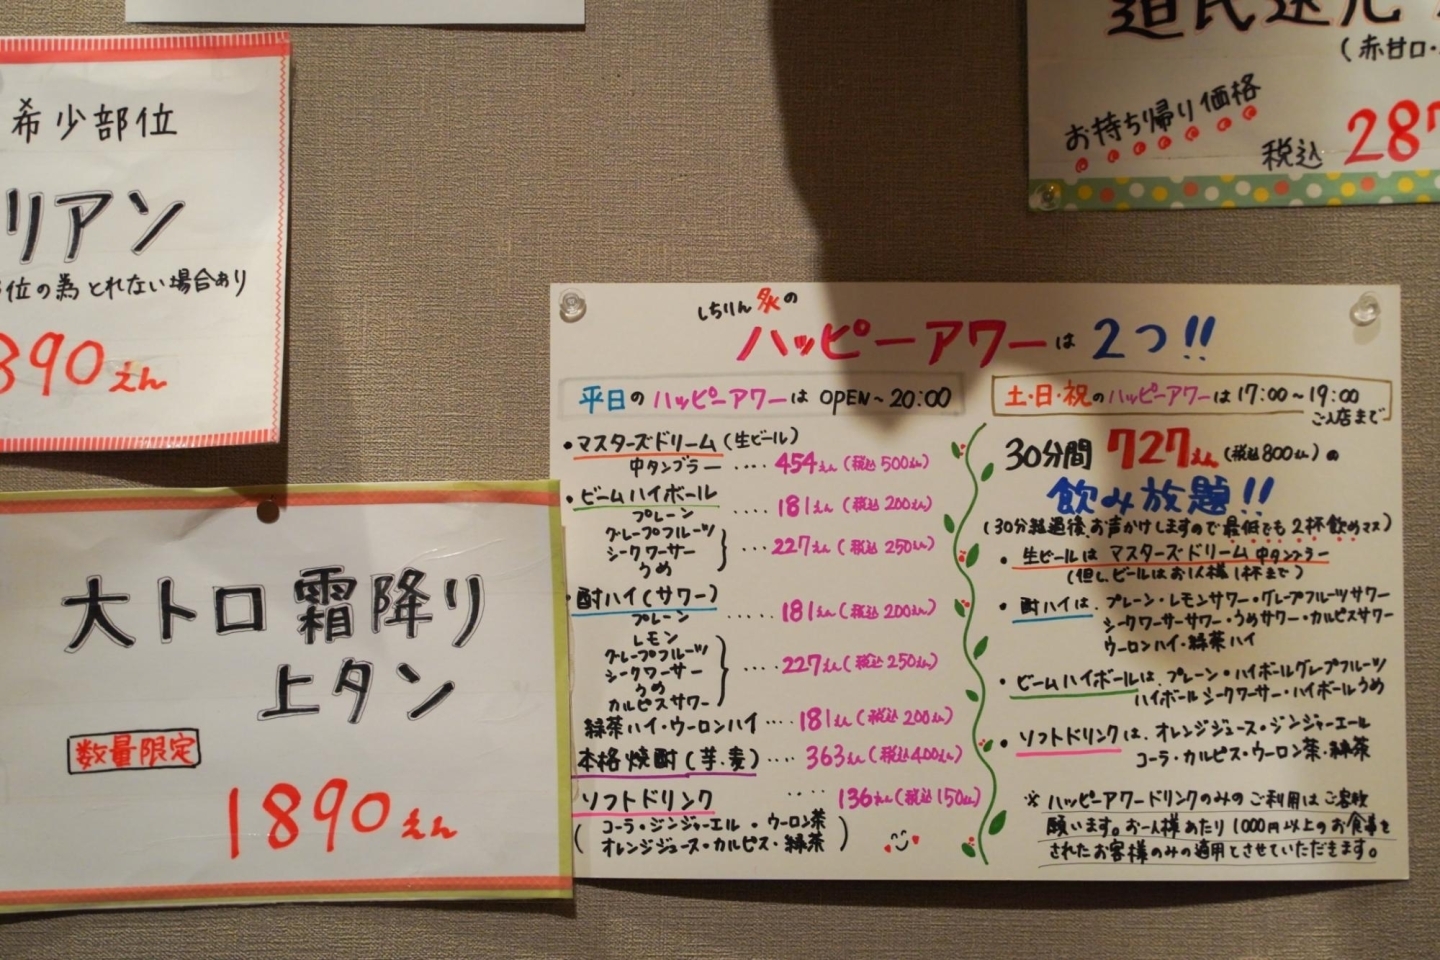 希少部位
リアン
位の為とれない場合あり
890えん
大トロ霜降り
上タン
数量限定
1890えん
道民還元
(赤甘口・
お持ち帰り価格
税込 287
しちりん炙の
ハッピーアワーは2つ!!
平日のハッピーアワーは OPEN~20:00
・マスターズドリーム(生ビール)
中タンブラー ････ 454えん(税込500えん)
・ビームハイボール
プレーン ････ 181えん(税込200えん)
グレープフルーツ
シークワーサー ･･･ 227えん(税込250えん)
うめ
・酎ハイ(サワー)
プレーン ････ 181えん(税込200えん)
レモン
グレープフルーツ
シークワーサー ････ 227えん(税込250えん)
うめ
カルピスサワー
緑茶ハイ・ウーロンハイ ････ 181えん(税込200えん)
本格焼酎(芋・麦) ････ 363えん(税込400えん)
ソフトドリンク ････ 136えん(税込150えん)
(コーラ・ジンジャーエル・ウーロン茶
オレンジジュース・カルピス・緑茶)
土・日・祝のハッピーアワーは17:00~19:00
ご入店まで
30分間 727えん(税込800えん)の
飲み放題!!
(30分経過後、お声かけしますので最低でも2杯飲めマス)
・生ビールは マスターズドリーム中タンブラー
(但しビールはお1人様1杯まで)
・酎ハイは、プレーン・レモンサワー・グレープフルーツサワー
シークワーサーサワー・うめサワー・カルピスサワー
ウーロンハイ・緑茶ハイ
・ビームハイボールは、プレーン・ハイボールグレープフルーツ
ハイボールシークワーサー・ハイボールうめ
・ソフトドリンクは、オレンジジュース・ジンジャーエール
コーラ・カルピス・ウーロン茶・緑茶
※ハッピーアワードリンクのみのご利用はご容赦
願います。お一人様あたり1000円以上のお食事を
されたお客様のみの適用とさせていただきます。